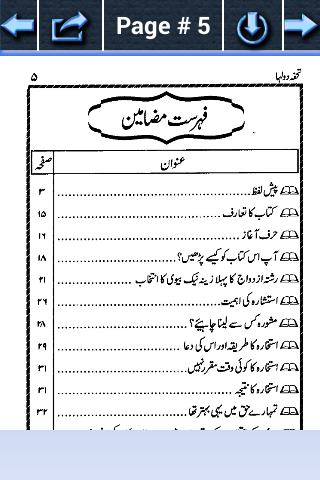 Page # 5
تحفہ دولہا
۵
فہرست مضامین
عنوان صفحہ
پیش لفظ ۳
کتاب کا تعارف ۱۵
حرف آغاز ۱۶
آپ اس کتاب کو کیسے پڑھیں؟ ۱۸
رشتہ ازدواج کا پہلا زینہ نیک بیوی کا انتخاب ۲۱
استشارہ کی اہمیت ۲۶
مشورہ کس سے لینا چاہیئے؟ ۲۸
استخارہ کا طریقہ اور اس کی دعا ۲۹
استخارہ کا کوئی وقت مقرر نہیں ۳۱
استخارہ کا نتیجہ ۳۱
تمہارے حق میں یہی بہتر تھا ۳۲